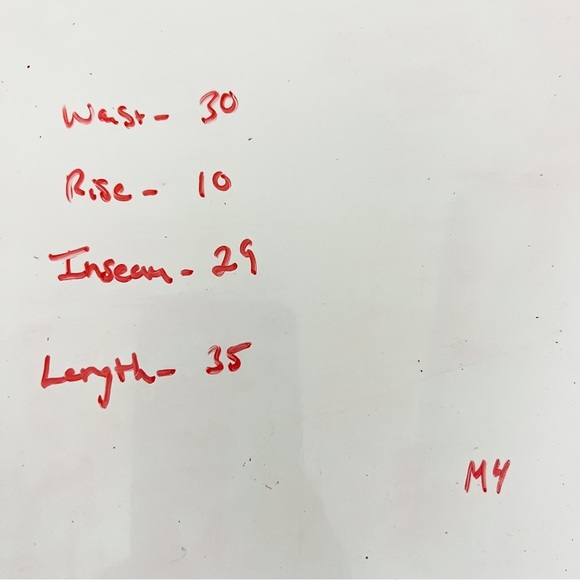 Waist - 30
Rise - 10
Inseam - 29
Length - 35
M4